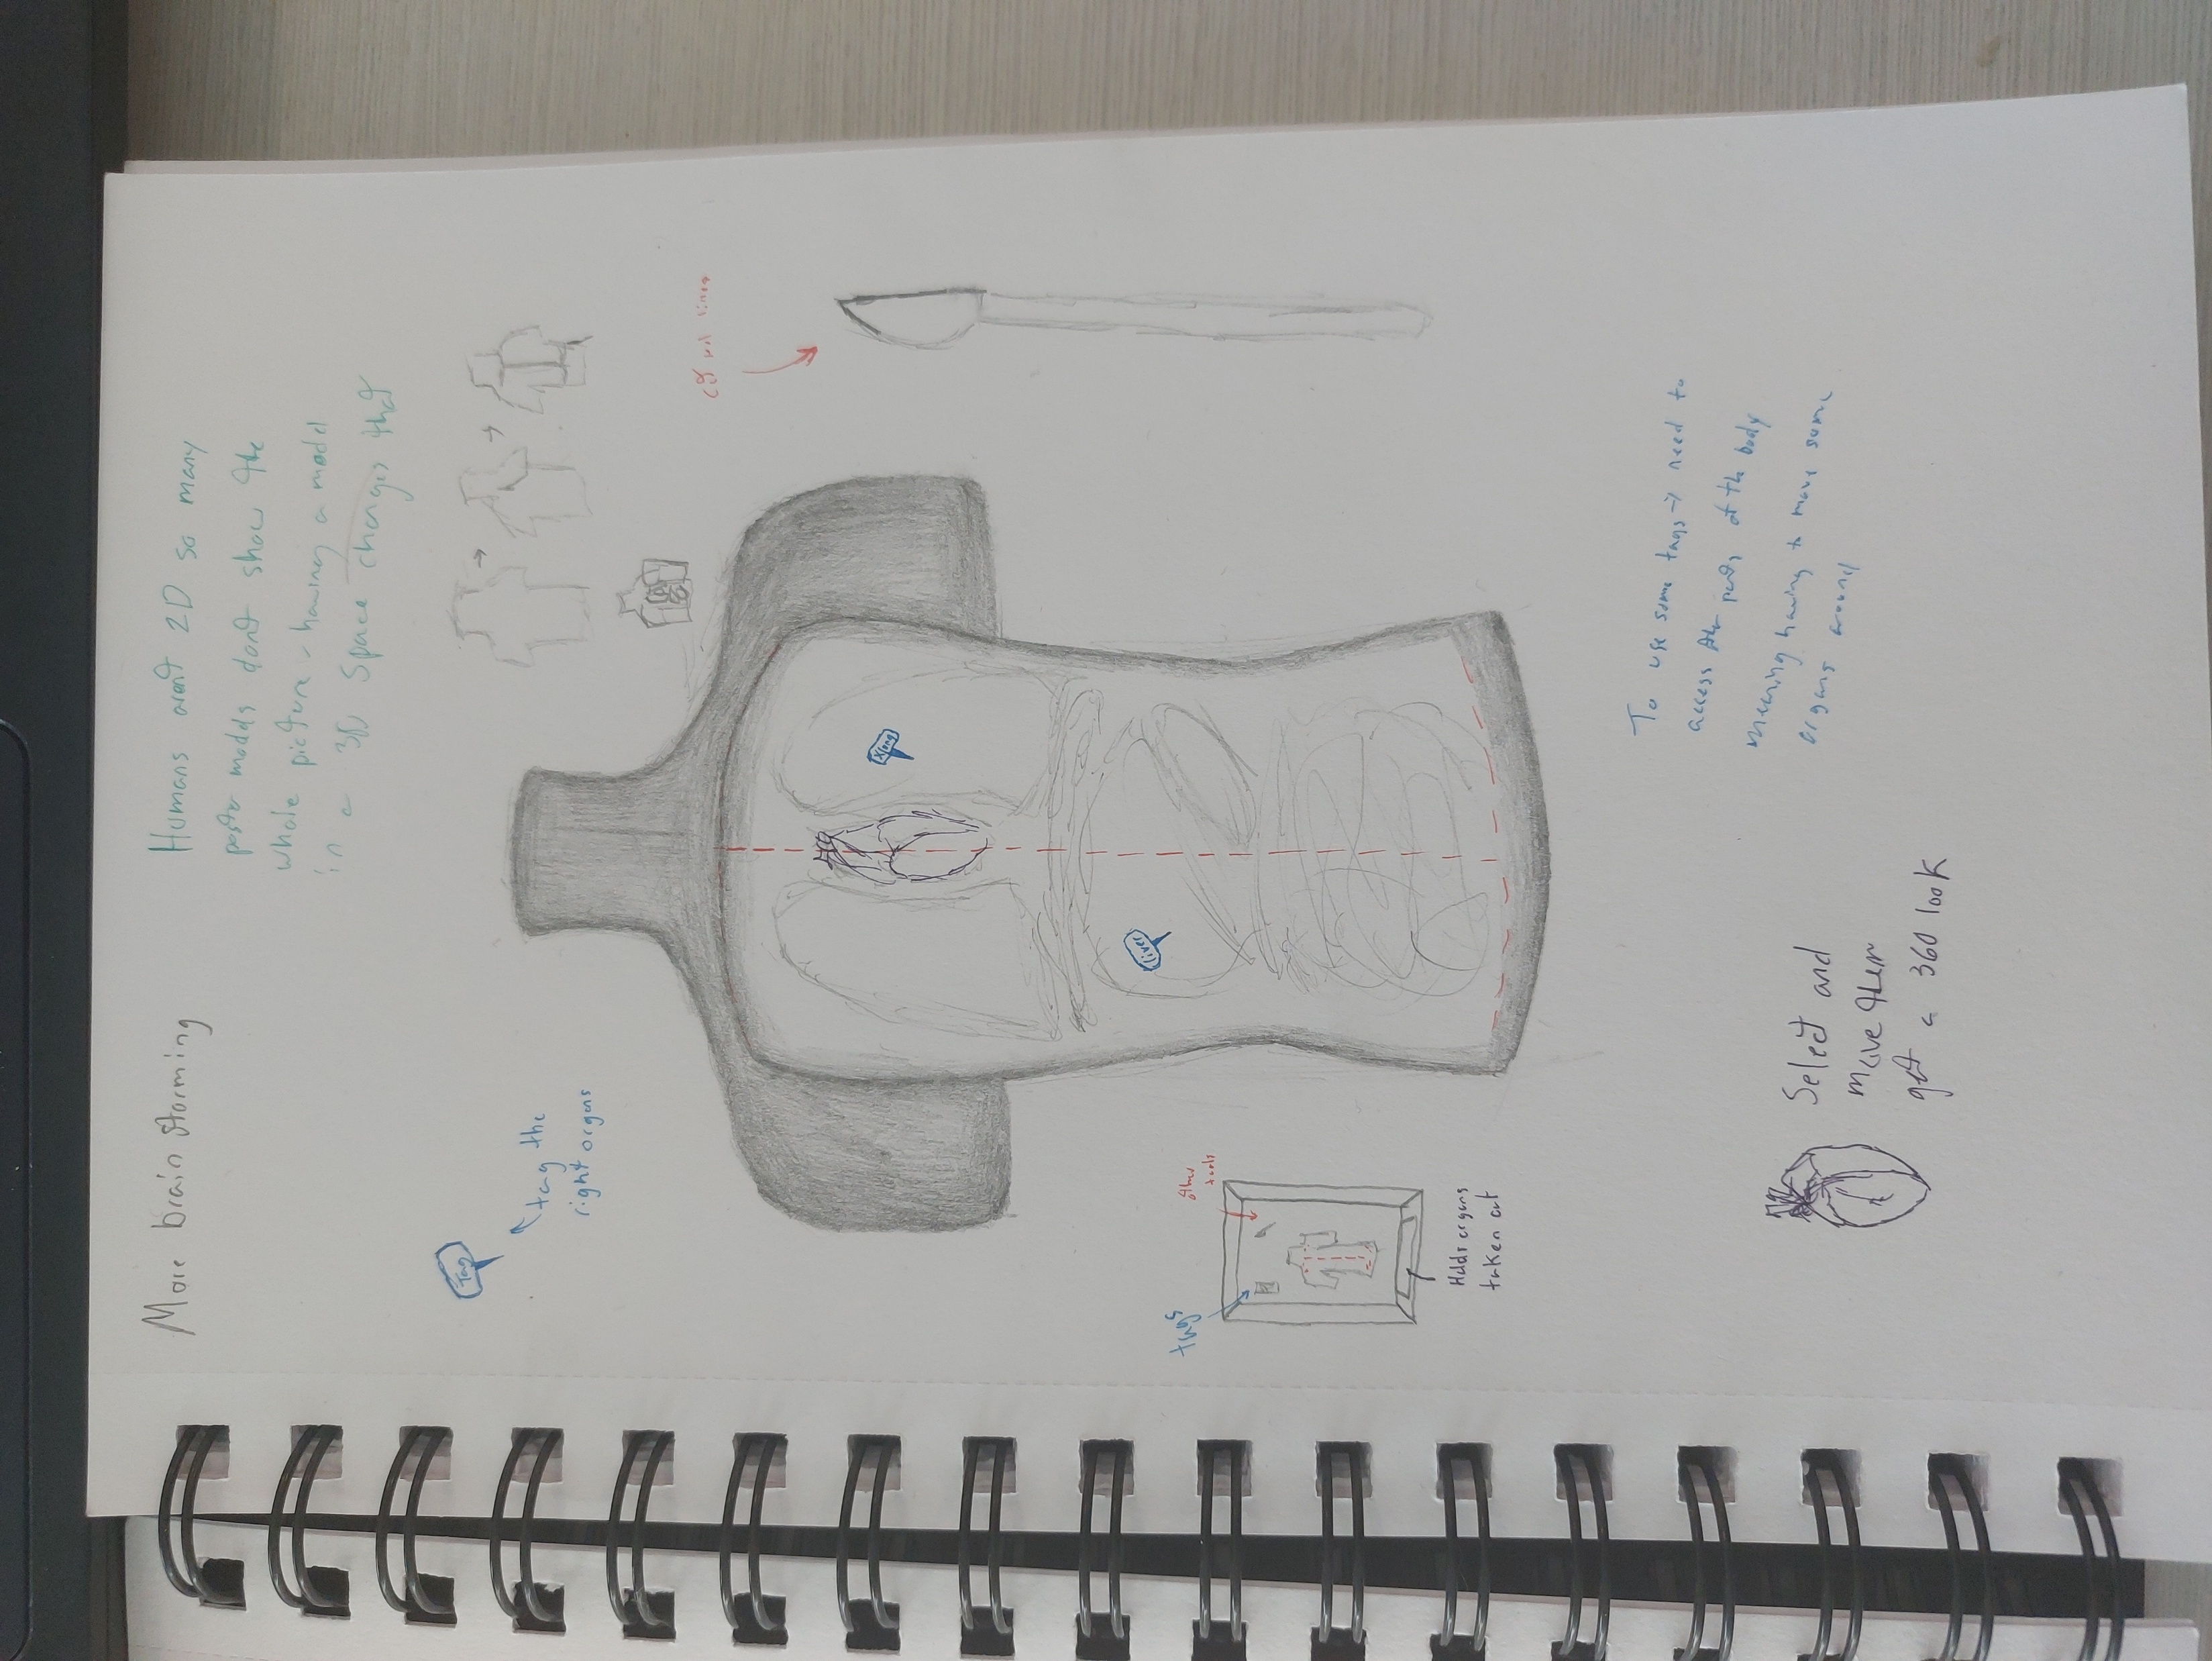 More brain storming
Humans arent 2D so many
poster models dont show the
whole picture, having a model
in a 3D space changes that
Tag
tag the
right organs
cut red lines
lung
liver
tags
other
tools
Holds organs
taken out
To use some tags → need to
access other parts of the body
meaning having to move some
organs around
Select and
move them
get a 360 look